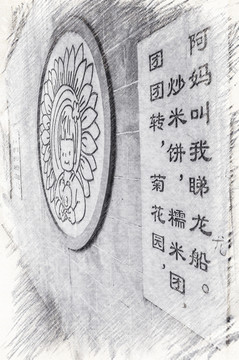 团团转，菊花园，
炒米饼，糯米团，
阿妈叫我睇龙船。